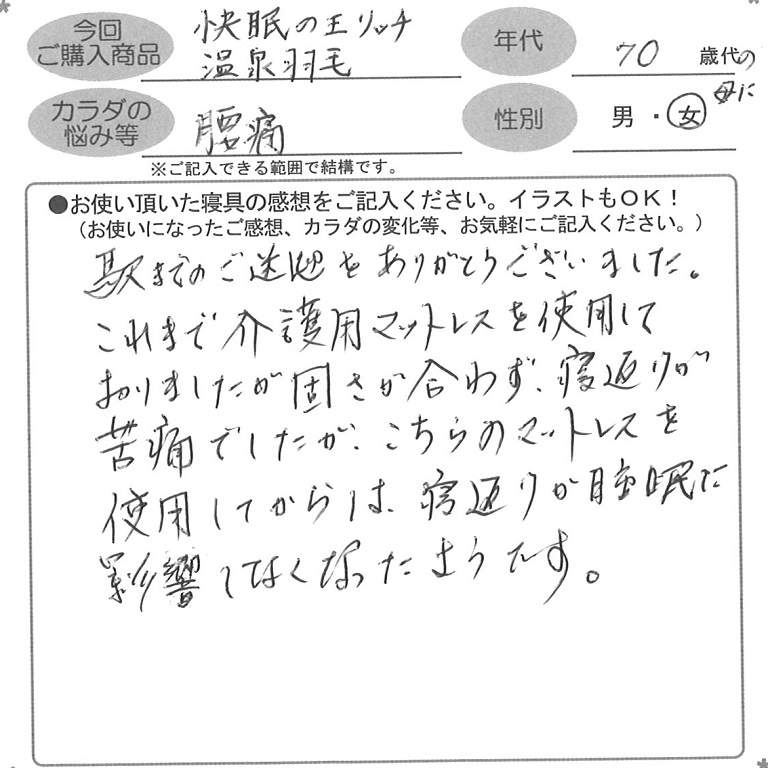 今回
ご購入商品
快眠の王リッチ
温泉羽毛
年代
70 歳代の
母に
カラダの
悩み等
腰痛
性別
男・女
※ご記入できる範囲で結構です。
●お使い頂いた寝具の感想をご記入ください。イラストもOK!
(お使いになったご感想、カラダの変化等、お気軽にご記入ください。)
駅までのご送迎をありがとうございました。
これまで介護用マットレスを使用して
おりましたが固さが合わず、寝返りが
苦痛でしたが、こちらのマットレスを
使用してからは、寝返りが睡眠に
影響しなくなったようです。